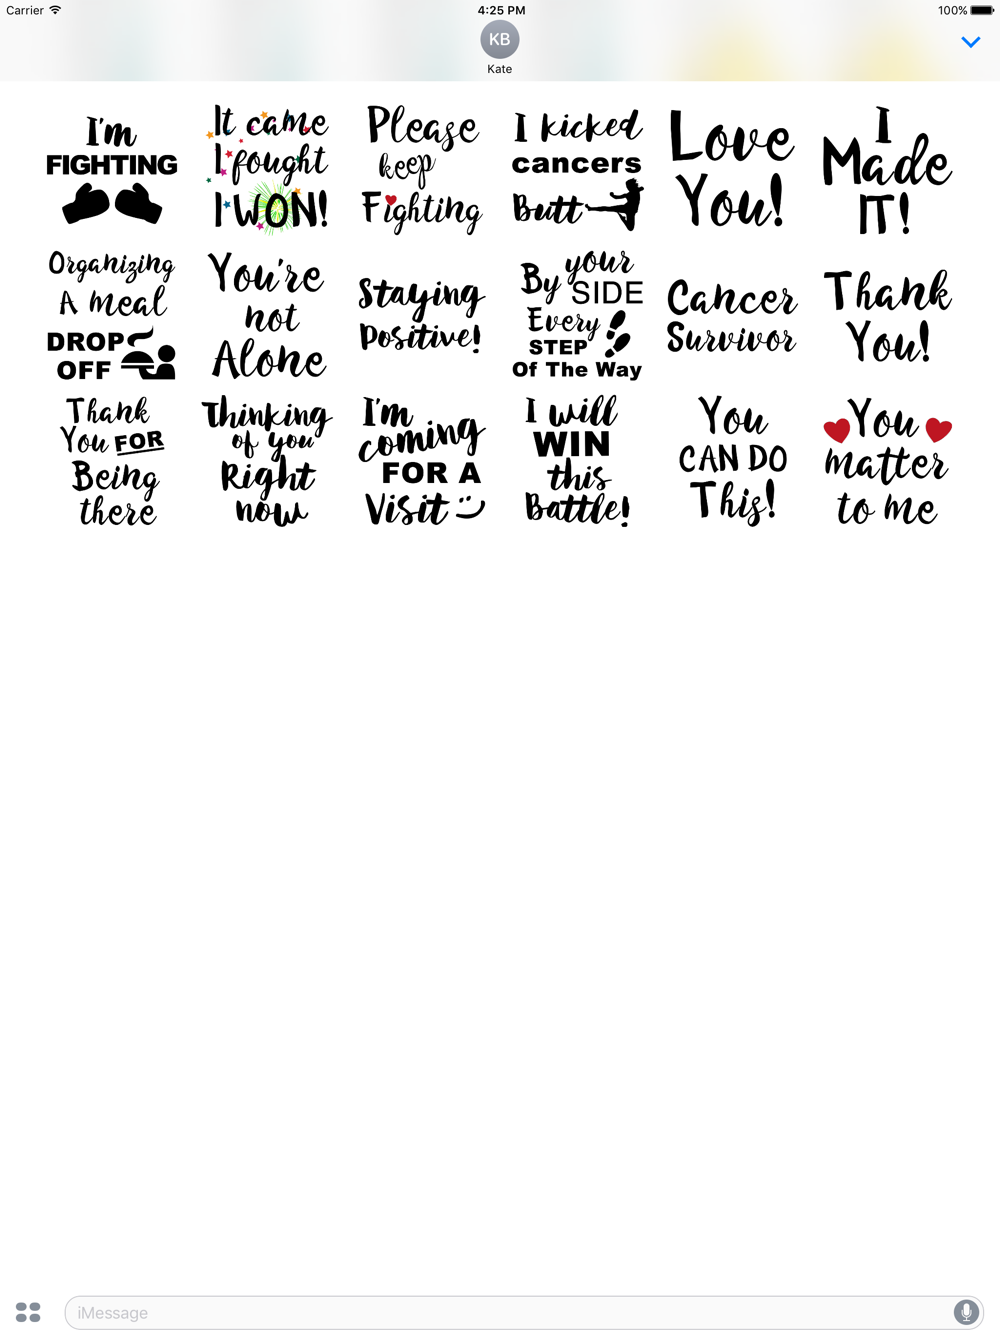 Carrier
4:25 PM
100%
KB
Kate
I'm
FIGHTING
It came
I fought
I WON!
Please
keep
Fighting
I kicked
cancers
Butt
Love
You!
I
Made
IT!
Organizing
A meal
DROP
OFF
You're
not
Alone
Staying
Positive!
By your
SIDE
Every
STEP
Of The Way
Cancer
Survivor
Thank
You!
Thank
You FOR
Being
there
Thinking
of you
Right
now
I'm
coming
FOR A
Visit
I will
WIN
this
Battle!
You
CAN DO
This!
You
matter
to me
iMessage